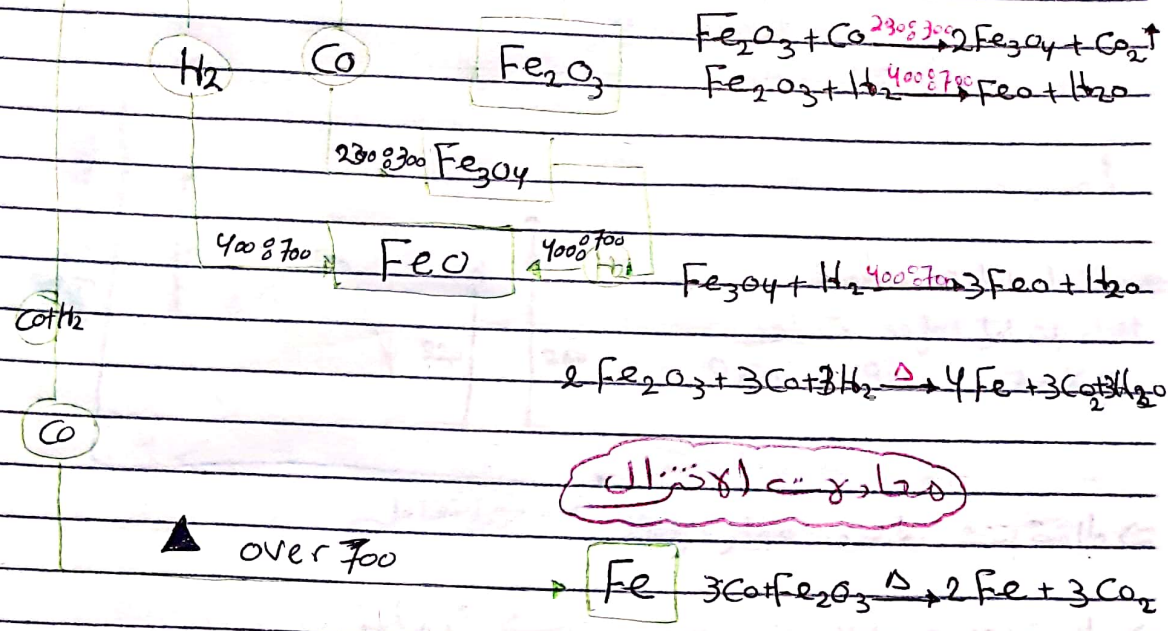 Fe2O3 + Co 230:300 → 2Fe3O4 + Co2↑
H2 Co Fe2O3 Fe2O3 + H2 400:700 → FeO + H2O
230:300 Fe3O4
400:700 FeO 400:700 Fe3O4 + H2 400:700 → 3FeO + H2O
Co+H2
2Fe2O3 + 3Co + 3H2 Δ → 4Fe + 3Co2 + 3H2O
Co
معادلات الاختزال
▲ over 700
Fe 3Co + Fe2O3 Δ → 2Fe + 3Co2